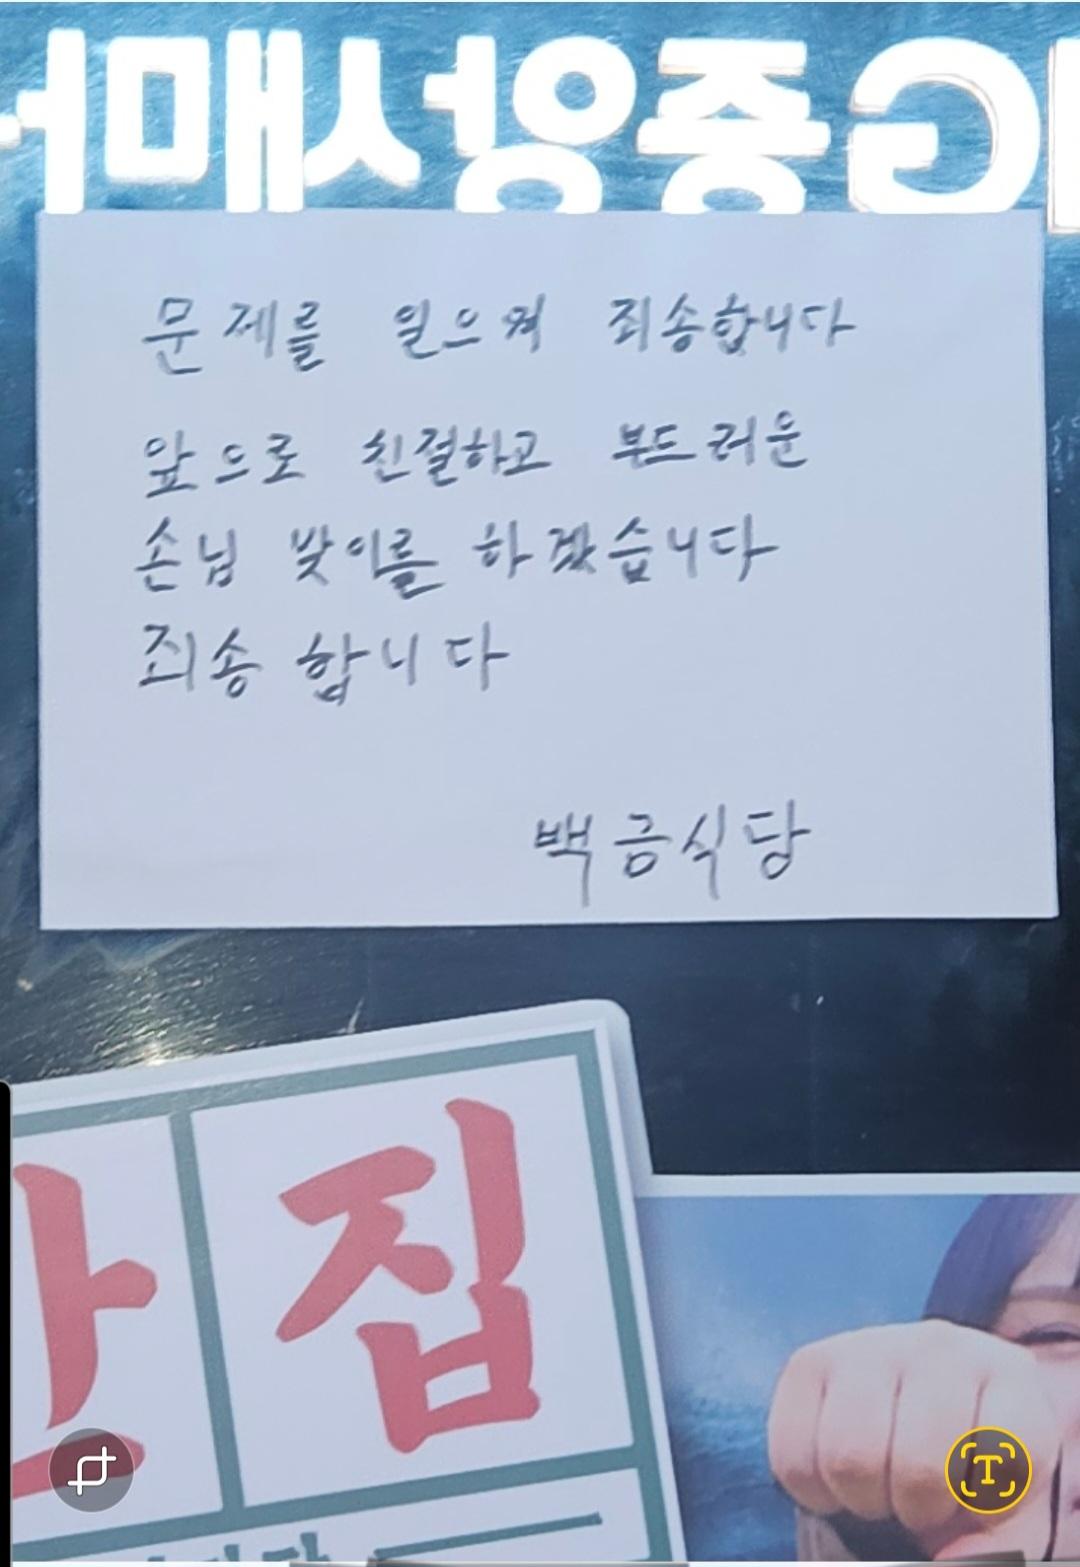 문제를 일으켜 죄송합니다
앞으로 친절하고 부드러운
손님 맞이를 하겠습니다
죄송 합니다
백금식당
집